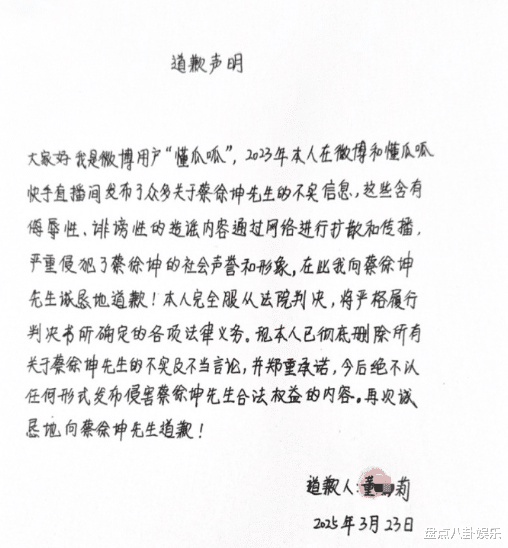 道歉声明
大家好我是微博用户“懂瓜呱”，2023年本人在微博和懂瓜呱
快手直播间发布了众多关于蔡徐坤先生的不实信息，这些含有
侮辱性、诽谤性的造谣内容通过网络进行扩散和传播，
严重侵犯了蔡徐坤的社会声誉和形象。在此我向蔡徐坤
先生诚恳地道歉！本人完全服从法院判决，将严格履行
判决书所确定的各项法律义务。现本人已彻底删除所有
关于蔡徐坤先生的不实及不当言论，并郑重承诺，今后绝不以
任何形式发布侵害蔡徐坤先生合法权益的内容。再次诚
恳地向蔡徐坤先生道歉！
道歉人：董莉
2025年3月23日
盘点八卦娱乐